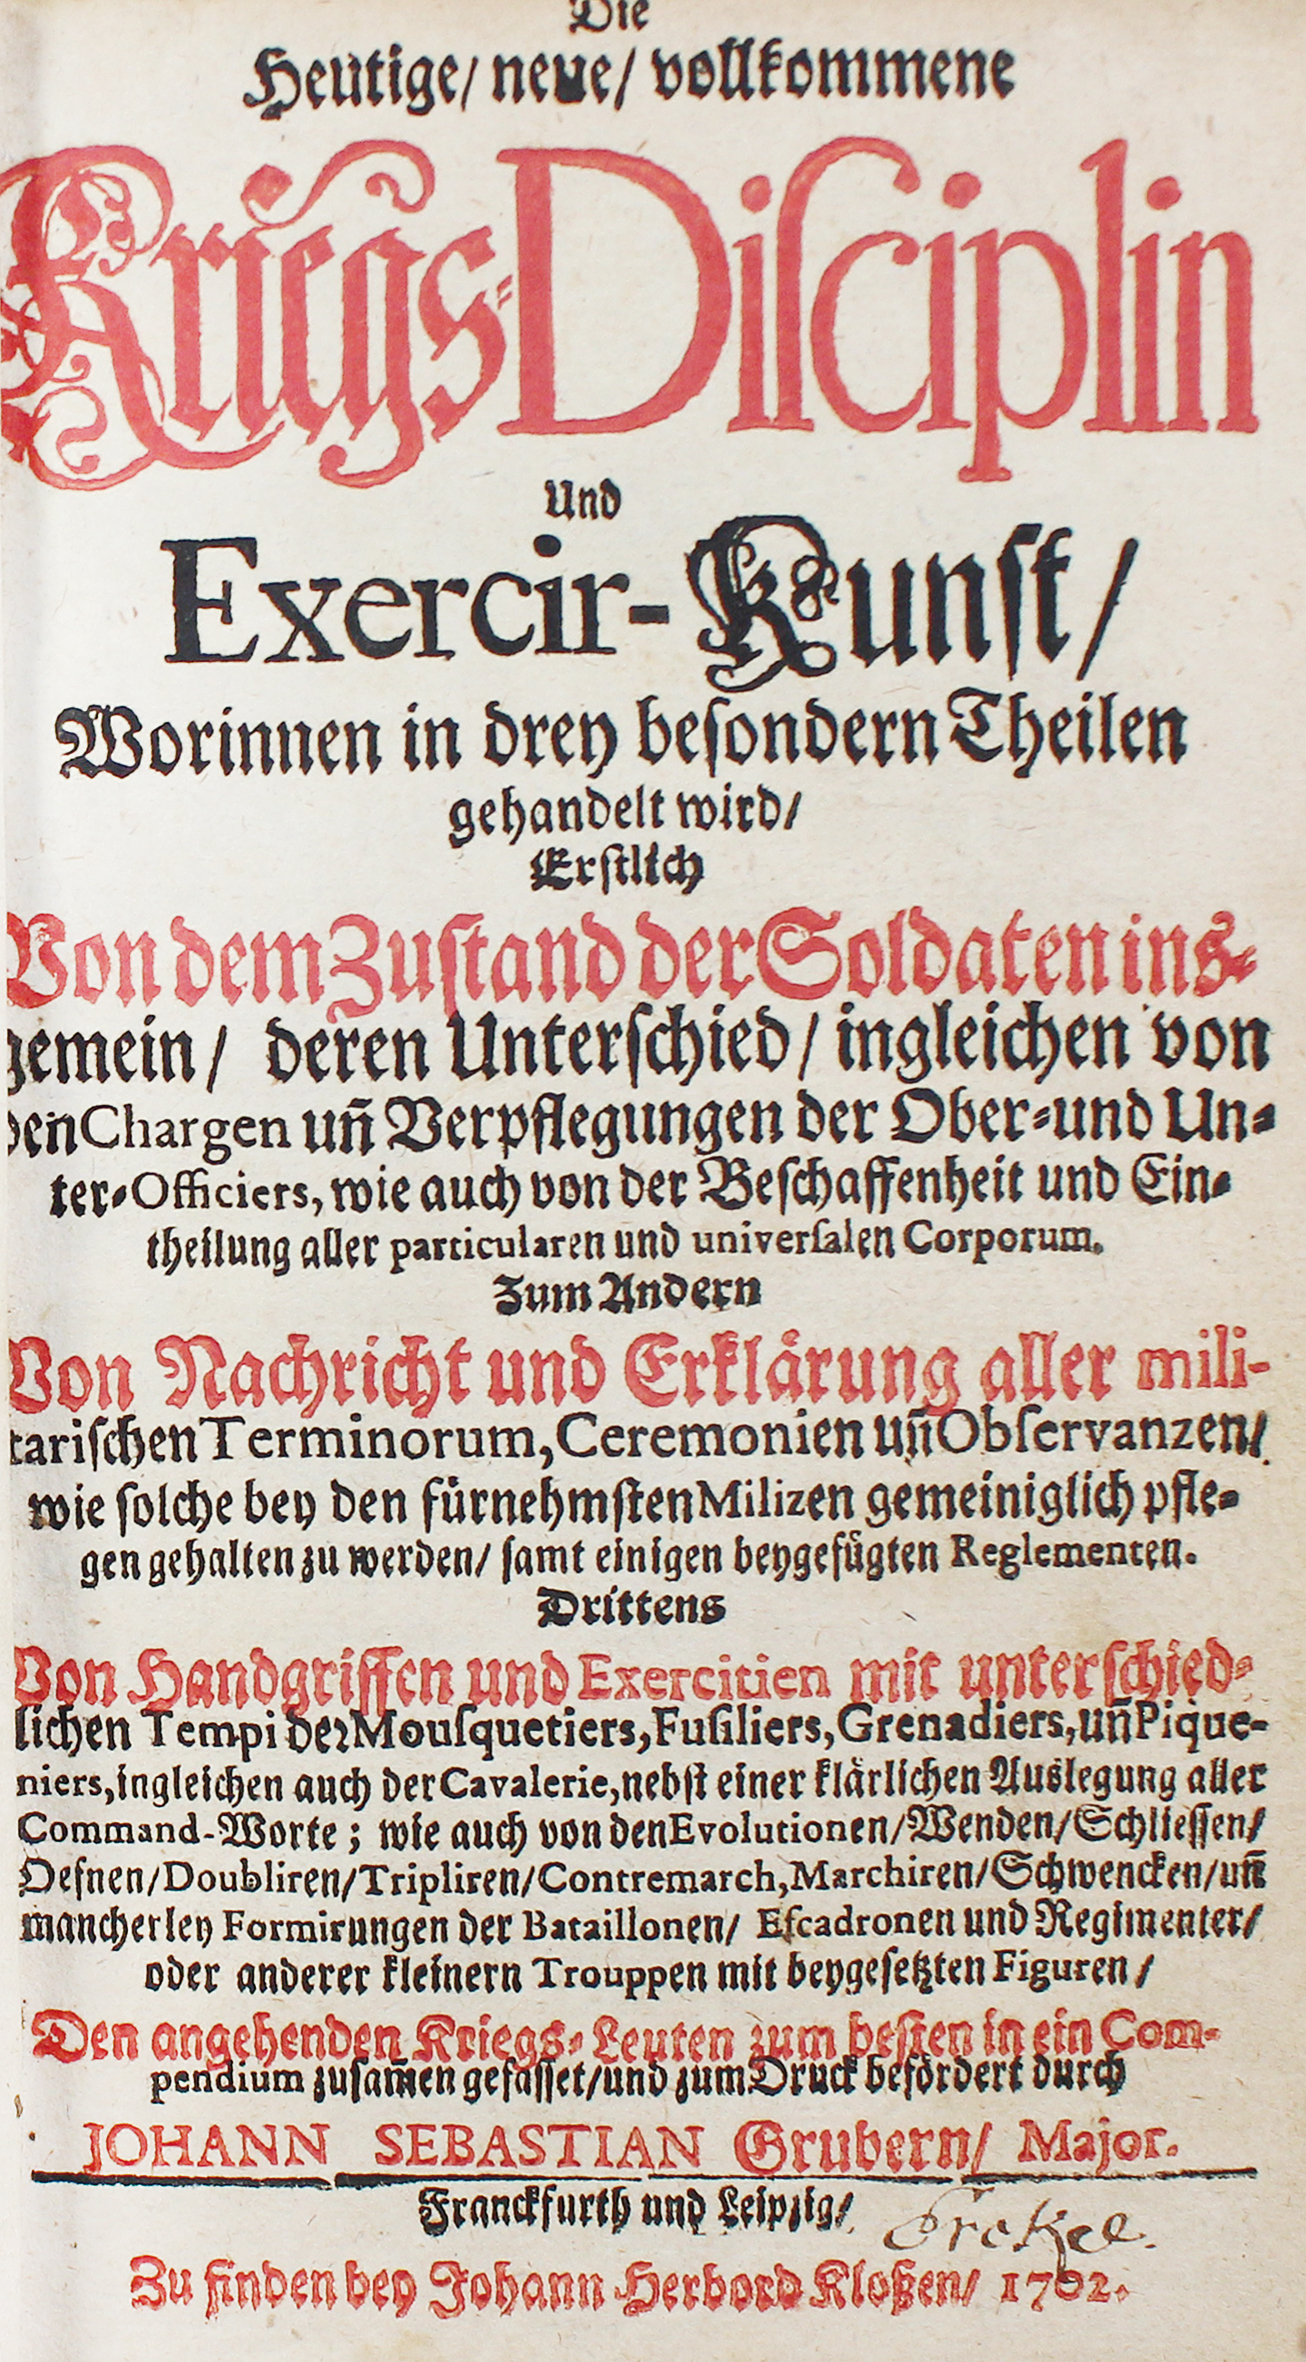 Die
Heutige/ neue/ vollkommene
Kriegs-Diſciplin
Und
Exercir-Kunſt/
Worinnen in drey beſondern Theilen
gehandelt wird/
Erſtlich
Von dem Zuſtand der Soldaten ins-
gemein/ deren Unterſchied/ ingleichen von
den Chargen uñ Verpflegungen der Ober-und Un-
ter-Officiers, wie auch von der Beſchaffenheit und Ein-
theilung aller particularen und univerſalen Corporum.
Zum Andern
Von Nachricht und Erklårung aller mili-
tariſchen Terminorum, Ceremonien uñ Obſervanzen/
wie ſolche bey den fürnehmſten Milizen gemeiniglich pfle-
gen gehalten zu werden/ ſamt einigen beygefügten Reglementen.
Drittens
Von Handgriffen und Exercitien mit unterſchied-
lichen Tempi der Mouſquetiers, Fuſiliers, Grenadiers, uñ Pique-
niers, ingleichen auch der Cavalerie, nebſt einer klårlichen Auslegung aller
Command-Worte; wie auch von den Evolutionen/ Wenden/ Schlieſſen/
Oefnen/ Doubliren/ Tripliren/ Contremarch, Marchiren/ Schwencken/ uñ
mancherley Formirungen der Bataillonen/ Eſcadronen und Regimenter/
oder anderer kleinern Trouppen mit beygeſetzten Figuren/
Den angehenden Kriegs-Leuten zum beſten in ein Com-
pendium zuſam̃en gefaſſet/ und zum Druck befördert durch
JOHANN SEBASTIAN Grubern/ Major.
Franckfurth und Leipzig/
Zu finden bey Johann Herbord Kloßen/ 1702.